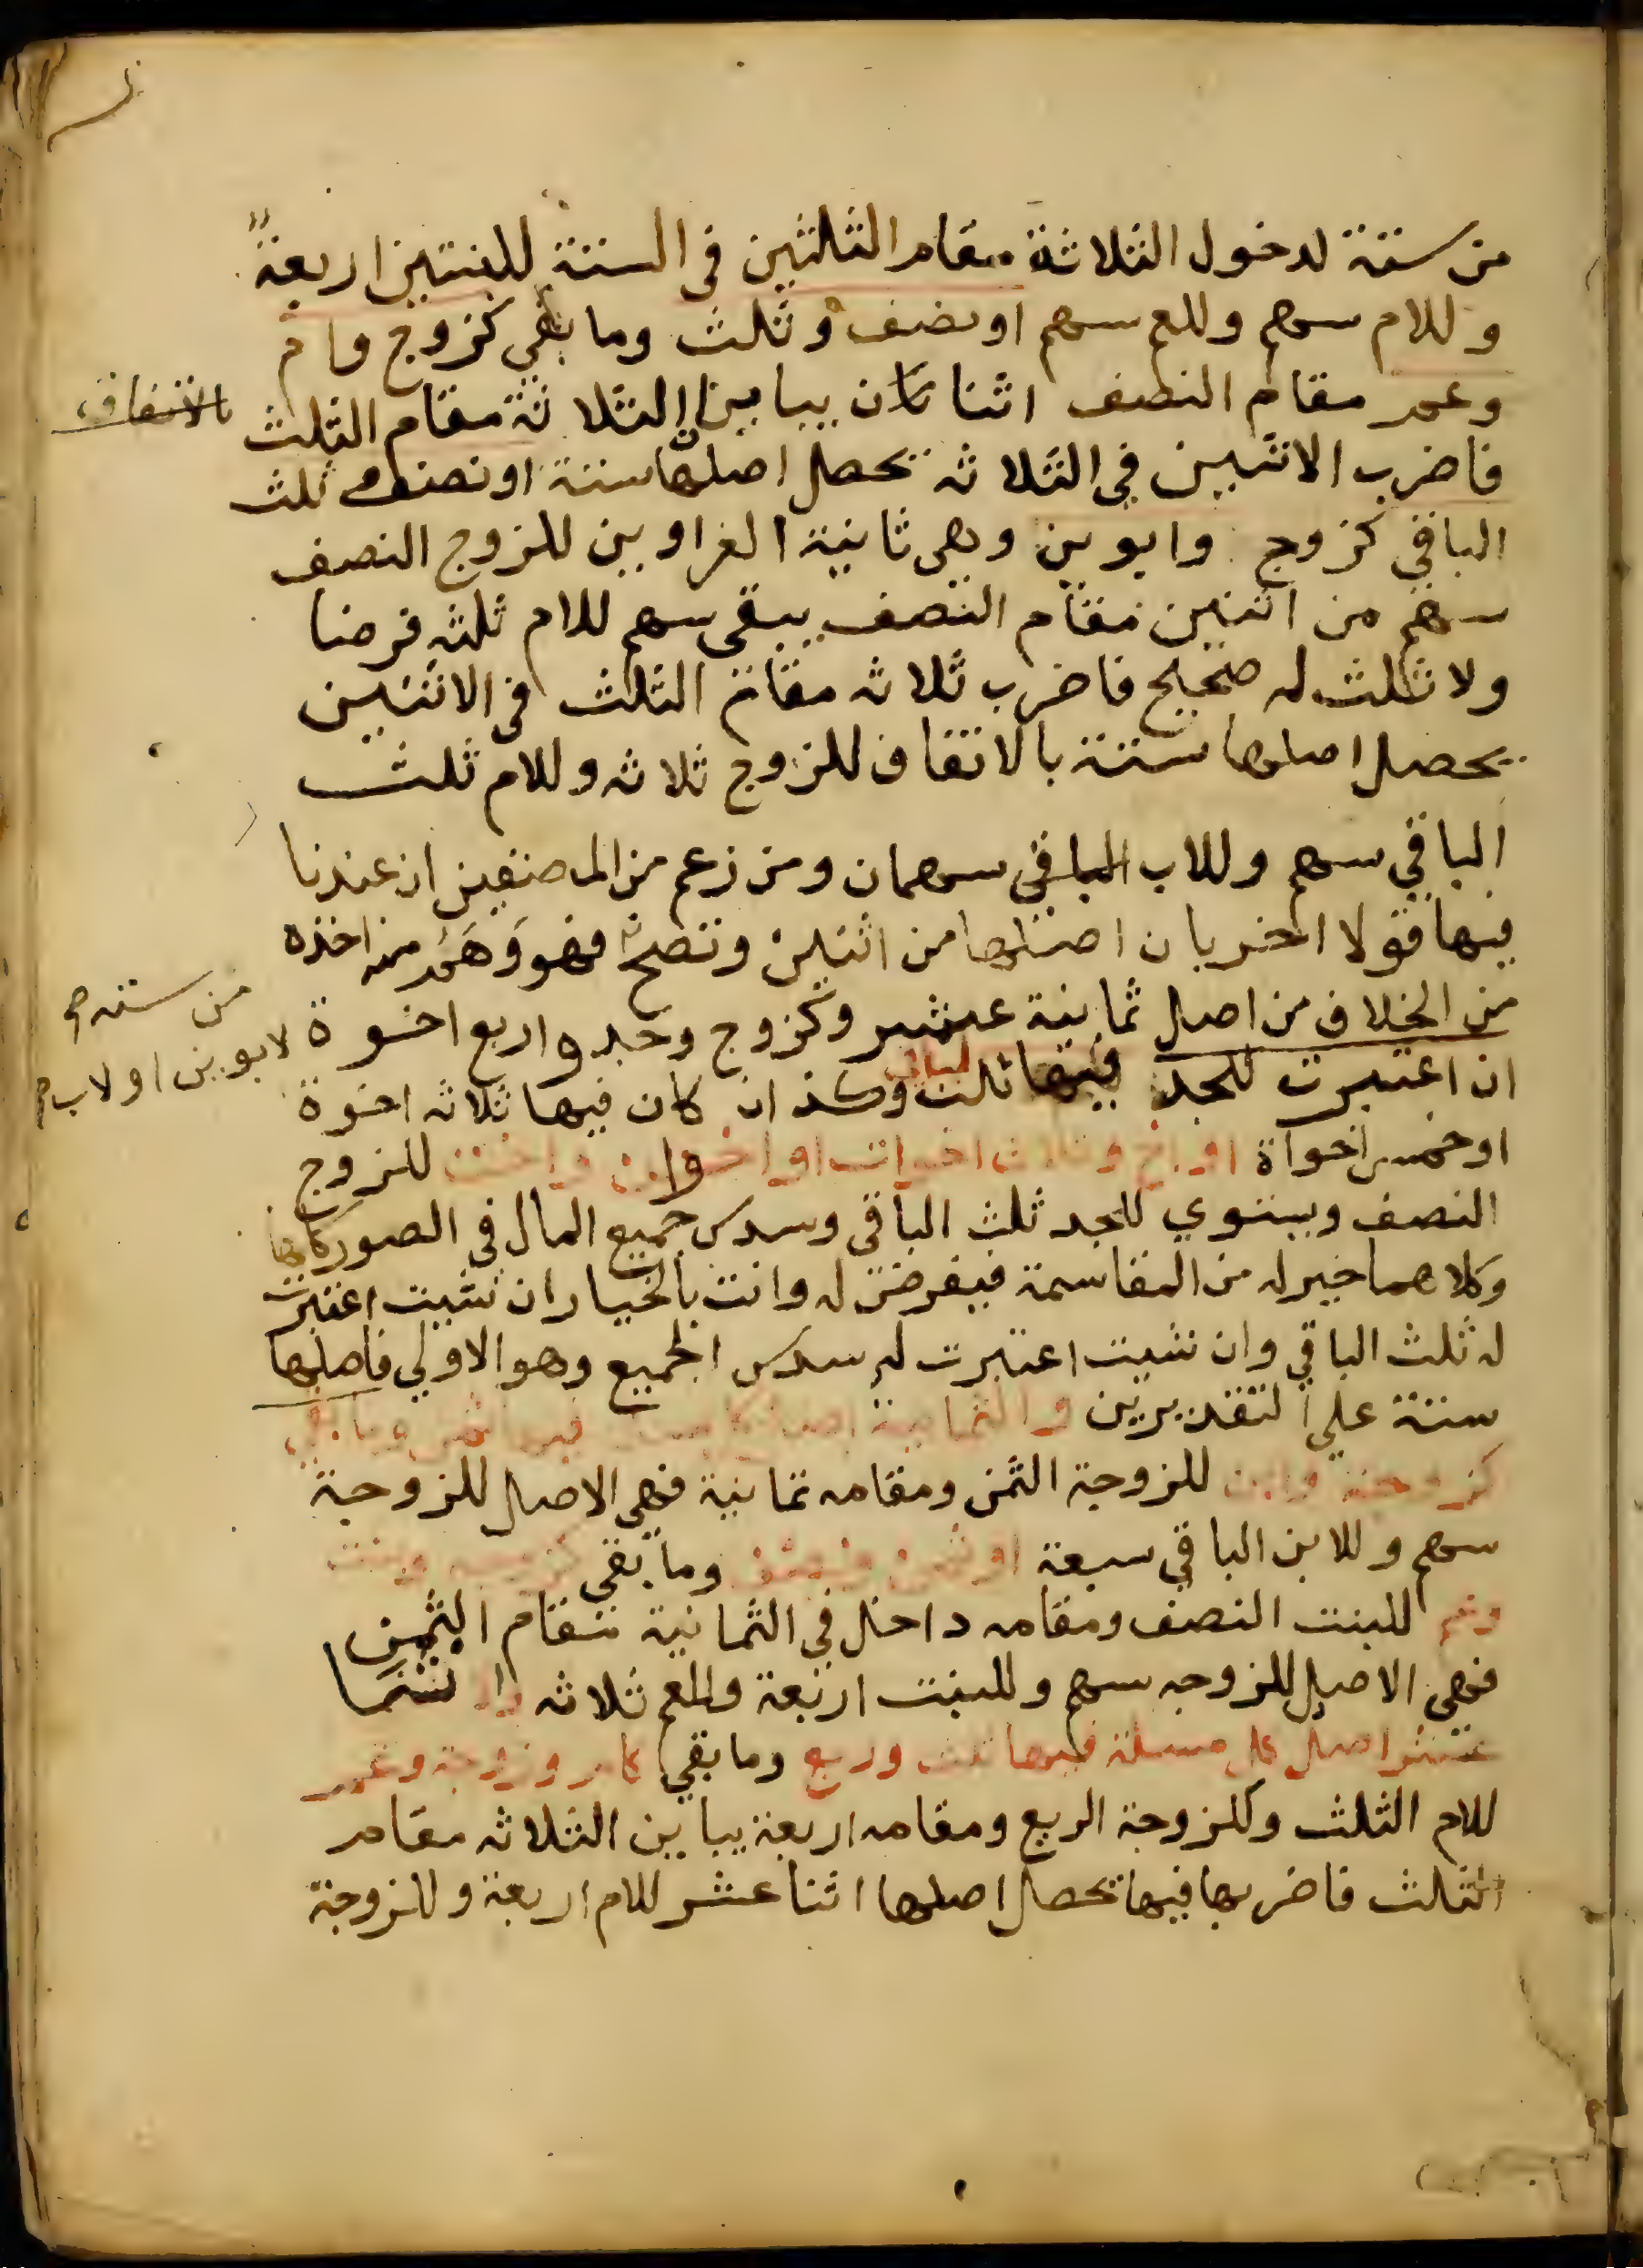 من ستة لدخول الثلاثة مقام الثلثين في الستة للبنتين اربعة
وللام سهم وللعم سهم او نصف وثلث وما بقي كزوج وام
وعم مقام النصف اثنان يباين الثلاثة مقام الثلث
بالاتفاق
فاضرب الاثنين في الثلاثه تحصل اصلها ستة او نصف وثلث
الباقي كزوج وابوين وهي ثانية الغراوين للزوج النصف
سهم من اثنين مقام النصف يبقى سهم للام ثلثه فرضا
ولا ثلث له صحيح فاضرب ثلاثه مقام الثلث في الاثنين
يحصل اصلها ستة بالاتفاق للزوج ثلاثه وللام ثلث
الباقي سهم وللاب الباقي سهمان ومن زعم من المصنفين ان عندنا
فيها قولا اخر بان اصلها من اثنين وتصح فهو وَهَم منه اخذه
من ستة
من الخلاف من اصل ثمانية عشر وكزوج وجد واربع اخوة
لابوين او لاب
ان اعتبرت للجد فيها ثلث الباقي وكذا ان كان فيها ثلاثه اخوة
او خمس اخواة او اخ وثلاث اخوات او اخوان واخت للزوج
النصف ويستوي للجد ثلث الباقي وسدس جميع المال في الصور كلها
وكلاهما خير له من المقاسمة فيفرض له وانت بالخيار ان شيت اعتبرت
له ثلث الباقي وان شيت اعتبرت له سدس الجميع وهو الاولي فاصلها
ستة علي التقديرين والثمانية اصل كل مسئلة فيها الثمن وما بقي
كزوجة وابن للزوجة الثمن ومقامه ثمانية فهي الاصل للزوجة
سهم وللابن الباقي سبعة او ثمن ونصف وما بقي كزوجة وبنت
وعم للبنت النصف ومقامه داخل في الثمانية مقام الثمن
فهي الاصل للزوجه سهم وللبنت اربعة وللعم ثلاثه والاثنا
عشر اصل كل مسئلة فيها ثلث وربع وما بقي كام وزوجة وعم
للام الثلث وللزوجة الربع ومقامه اربعة يباين الثلاثه مقام
الثلث فاضربها فيها تحصل اصلها اثنا عشر للام اربعة وللزوجة